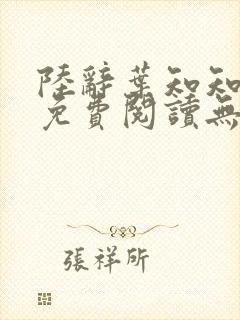 陸辭葉知知
免費閱讀無
張祥所